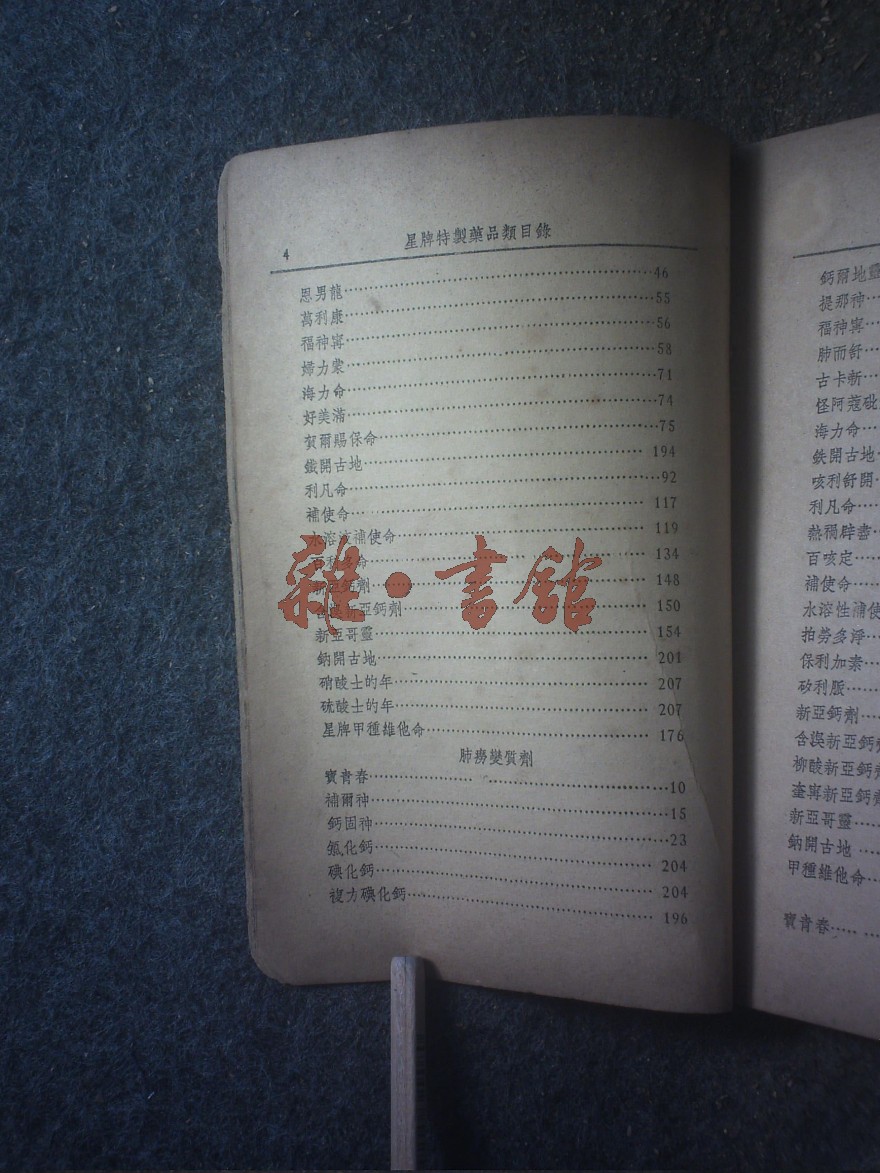 4 星牌特製藥品類目錄
恩男龍……46
萬利康……55
福神寗……56
婦力……58
海力命……71
好美滿……74
賀爾賜保命……75
鐵開古地……194
利凡命……92
補使命……117
水溶液補使命……119
百利多命……134
新亞鈣劑……148
含溴新亞鈣劑……150
新亞哥靈……154
鈉開古地……201
硝酸士的年……207
硫酸士的年……207
星牌甲種維他命……176
肺癆變質劑
寶青春……10
補爾神……15
鈣固神……23
氯化鈣……204
碘化鈣……204
複方碘化鈣……196
雜·書館
鈣爾地靈
提那神……
福神寗……
肺而舒……
古卡新……
怪阿蔻砒
海力命……
鉄開古地……
咳利舒開……
利凡命……
熱禍辟盡……
百咳定……
補使命……
水溶性補使
拍勞多淨……
保利加素……
矽利脤……
新亞鈣劑……
含溴新亞鈣
柳酸新亞鈣
奎寗新亞鈣劑
新亞哥靈……
鈉開古地……
甲種維他命……
寶青春……